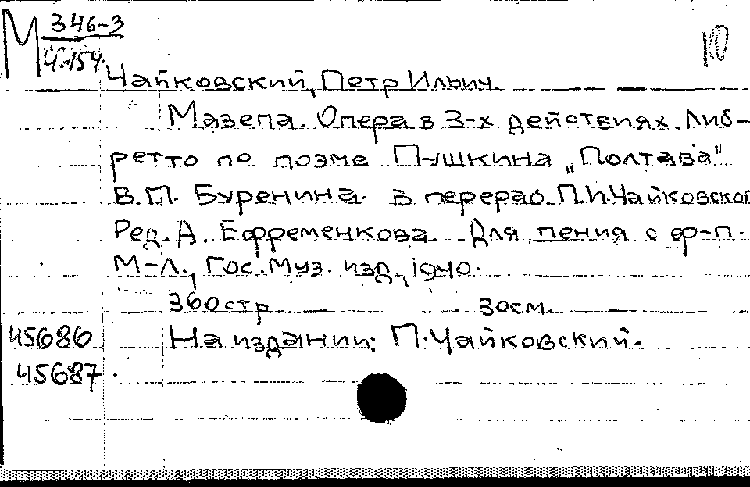 М 346-3
Ч.154. 10
Чайковский, Петр Ильич.
Мазепа. Опера в 3-х действиях. Либ-
ретто по поэме Пушкина „Полтава"
В.П. Буренина. В перераб. П.И.Чайковског
Ред. А. Ефременкова. Для пения с ф-п.
М-Л., Гос. Муз. изд., 1940.
360стр 30см.
45686 На издании: П.Чайковский.
45687.